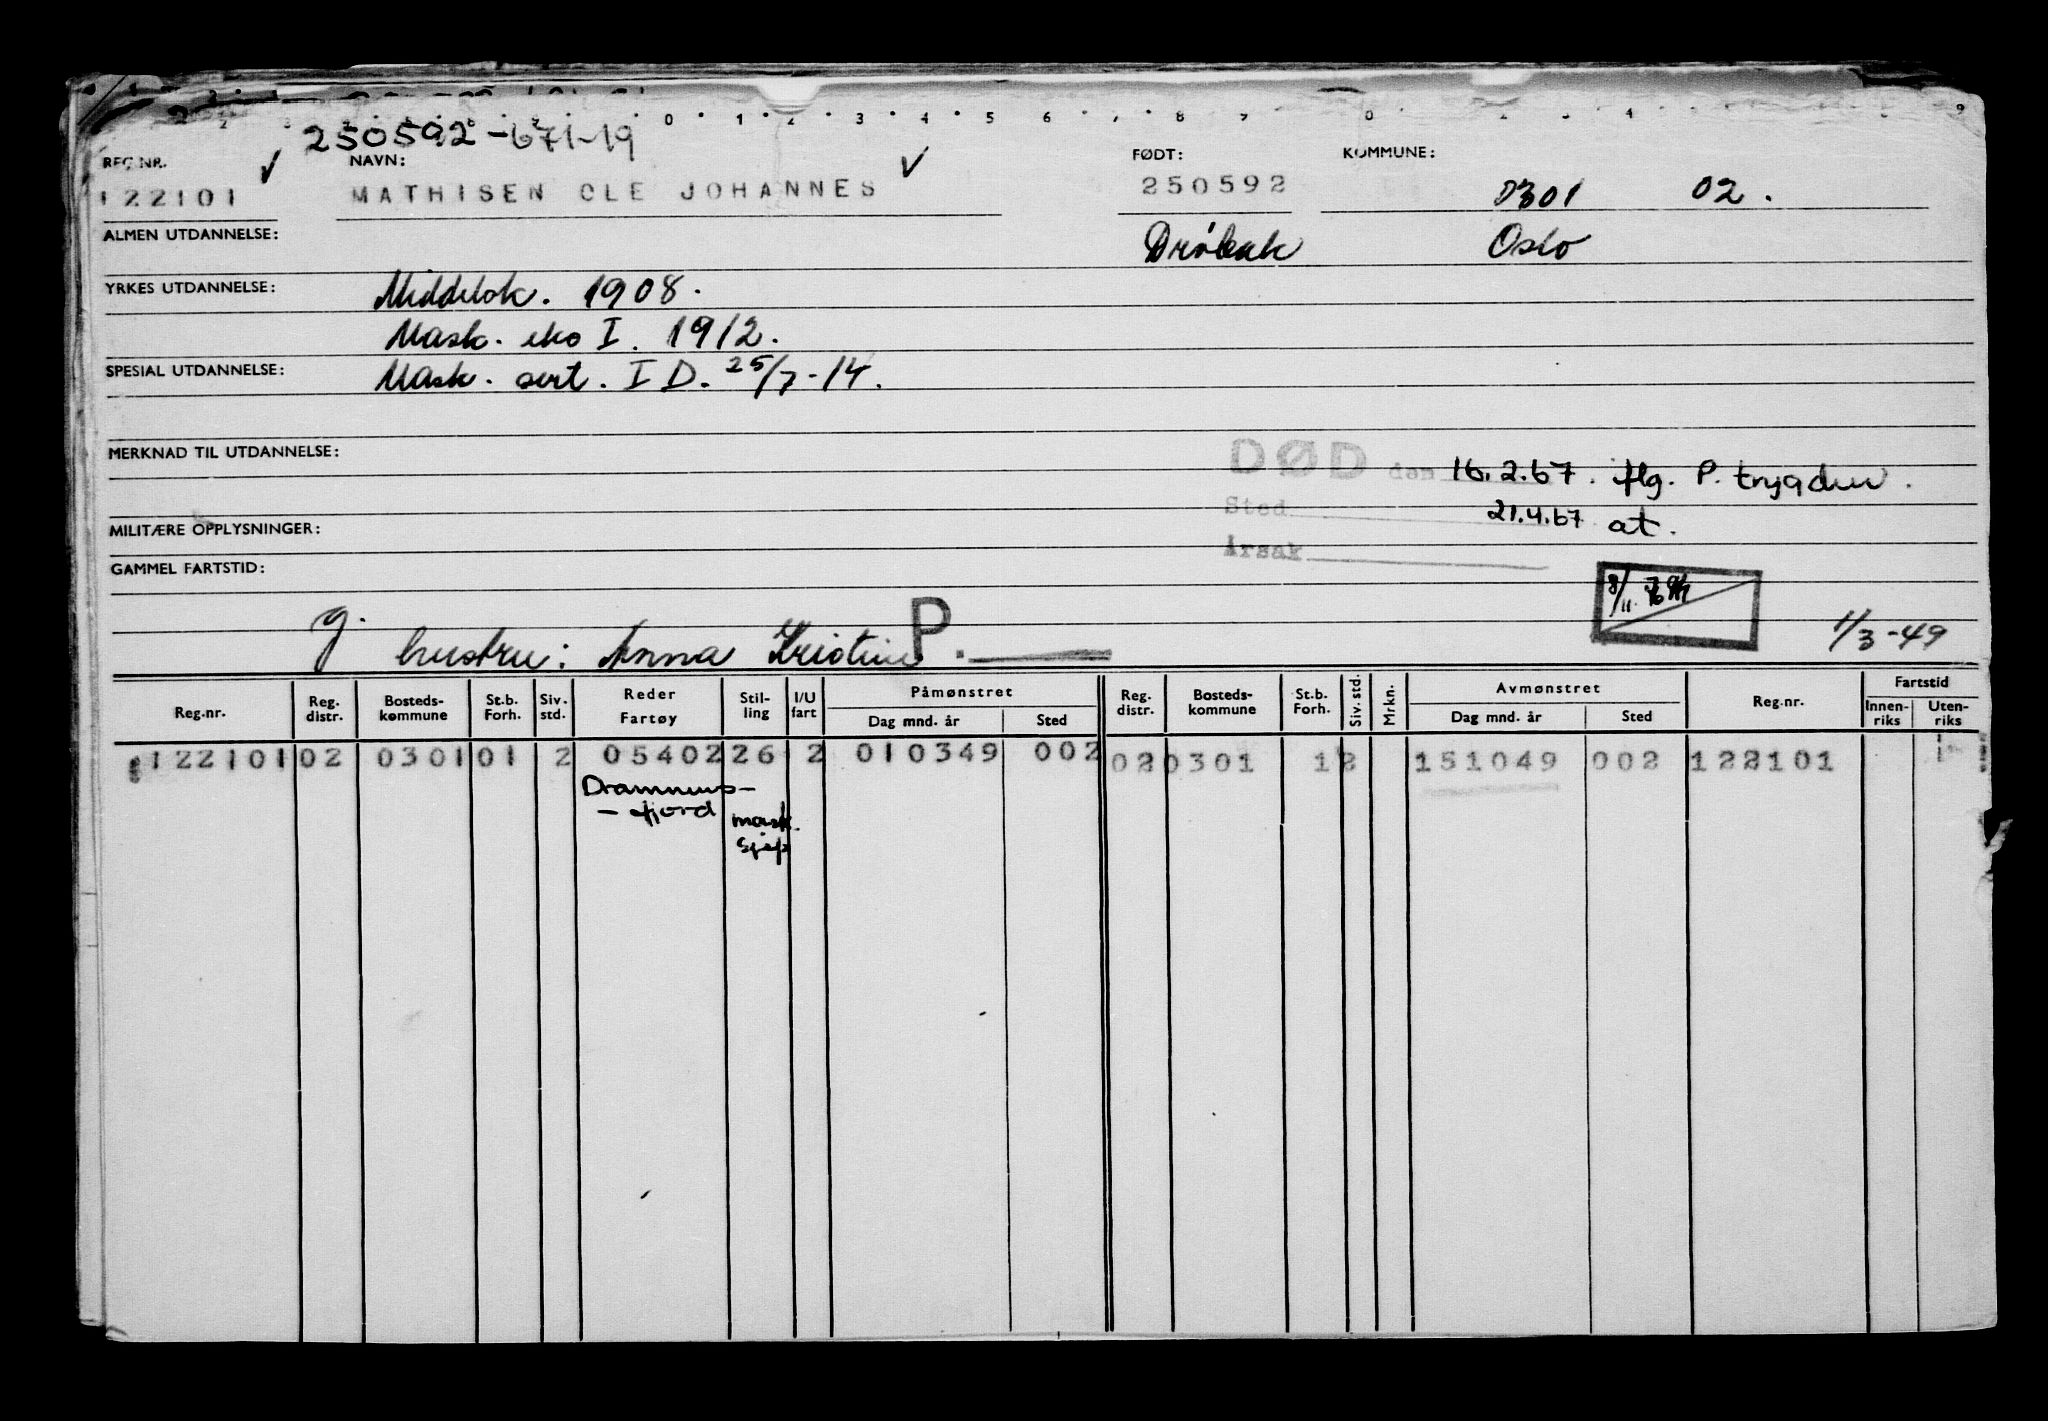 250592-671-19
REG.NR. NAVN: FØDT: KOMMUNE:
122101 MATHISEN OLE JOHANNES 250592 0301 02.
ALMEN UTDANNELSE: Drøbak Oslo
YRKES UTDANNELSE: Middelsk. 1908.
Mask. eks I. 1912.
SPESIAL UTDANNELSE: Mask. sert. I D. 25/7-14.
MERKNAD TIL UTDANNELSE: DØD den 16.2.67. flg. P. trygden.
Sted 21.4.67 at.
MILITÆRE OPPLYSNINGER:
Årsak
GAMMEL FARTSTID: 8/11
g. P. 1/3-49
hustru: Anna Kristine
Reg.nr. Reg. distr. Bosteds-kommune St.b. Forh. Siv. std. Reder Fartøy Stil-ling I/U fart Påmønstret Dag mnd. år Sted Reg. distr. Bosteds-kommune St.b. Forh. Siv. std. Mrkn. Avmønstret Dag mnd. år Sted Reg.nr. Fartstid Innen-riks Uten-riks
122101 02 0301 01 2 05402 26 2 010349 002 02 0301 1 2 151049 002 122101
Drammens-
-fjord mask.
sjef